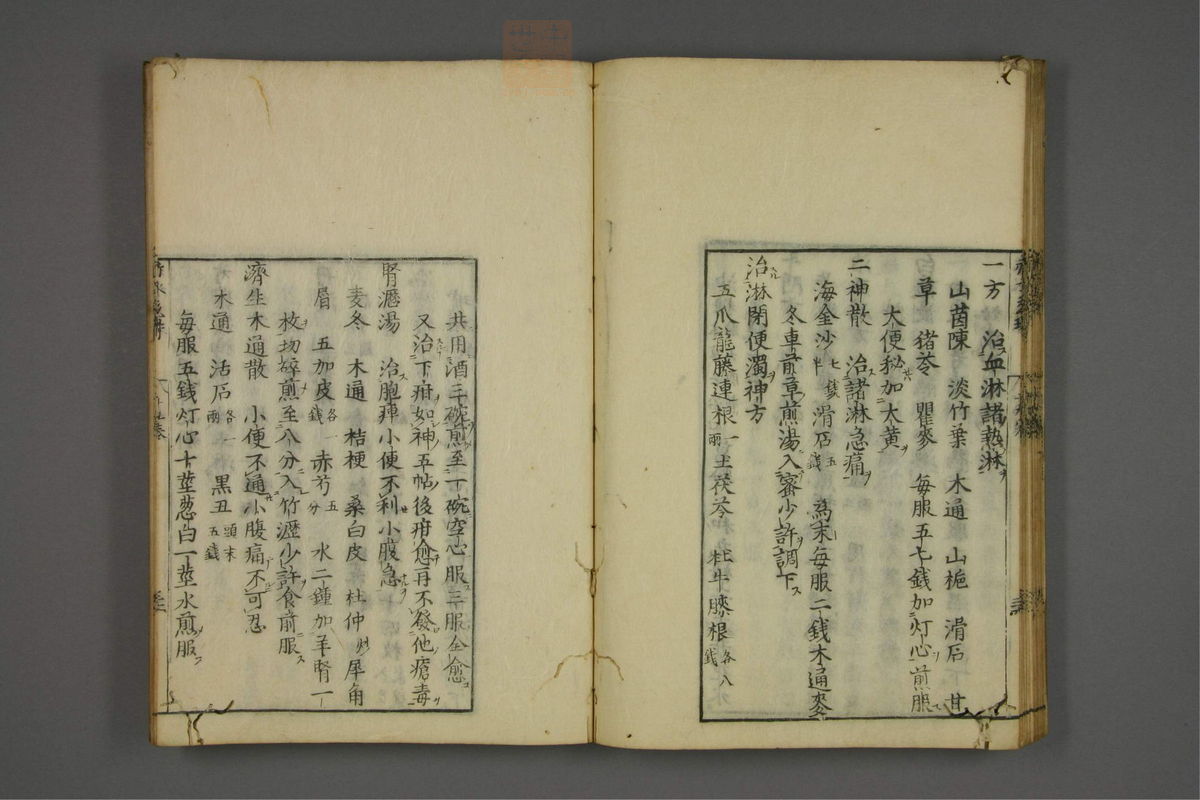 一方　治血淋諸熱淋
山茵陳　淡竹葉　木通　山梔　滑石　甘
草　猪苓　瞿麥　每服五七錢加灯心煎服
大便秘加大黃
二神散　治諸淋急痛
海金沙七錢半　滑石五錢　為末每服二錢木通麥
冬車前草煎湯入蜜少許調下
治淋閉便濁神方
五爪龍藤連根一兩　土茯苓　杜牛膝根各八錢
共用酒三碗煎至一碗空心服三服全愈
又治下疳如神五帖後疳愈再不發他瘡毒
腎瀝湯　治胞痺小便不利小腹急
麦冬　木通　桔梗　桑白皮　杜仲炒　犀角
屑　五加皮各一錢　赤芍五分　水二鍾加羊腎一
枚切碎煎至八分入竹瀝少許食前服
濟生木通散　小便不通小腹痛不可忍
木通　活石各一兩　黑丑頭末五錢
每服五錢灯心十莖葱白一莖水煎服